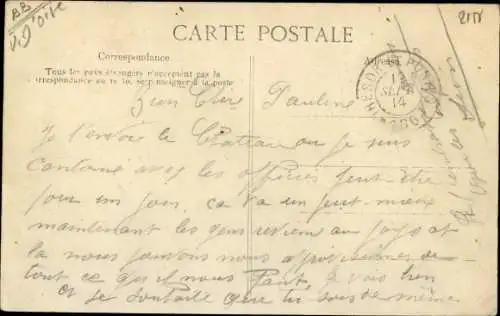 BB
V. d'Oise
2151
CARTE POSTALE
Correspondance
Adresse
Tous les pays étrangers n'acceptent pas la
correspondance au recto, se renseigner à la poste
TRESOR ET POSTES
SEPT
14
Bien Chère Pauline
Je t'envoie le Château ou je suis
cantonné avec les officiers peut-être
pour un jour, ca va un peut mieux
maintenant les gens revienn au pays et
la nous pouvons nous approvisionner de
tout ce qu'il nous faut, je vais bien
et je souhaite que tu sois de même